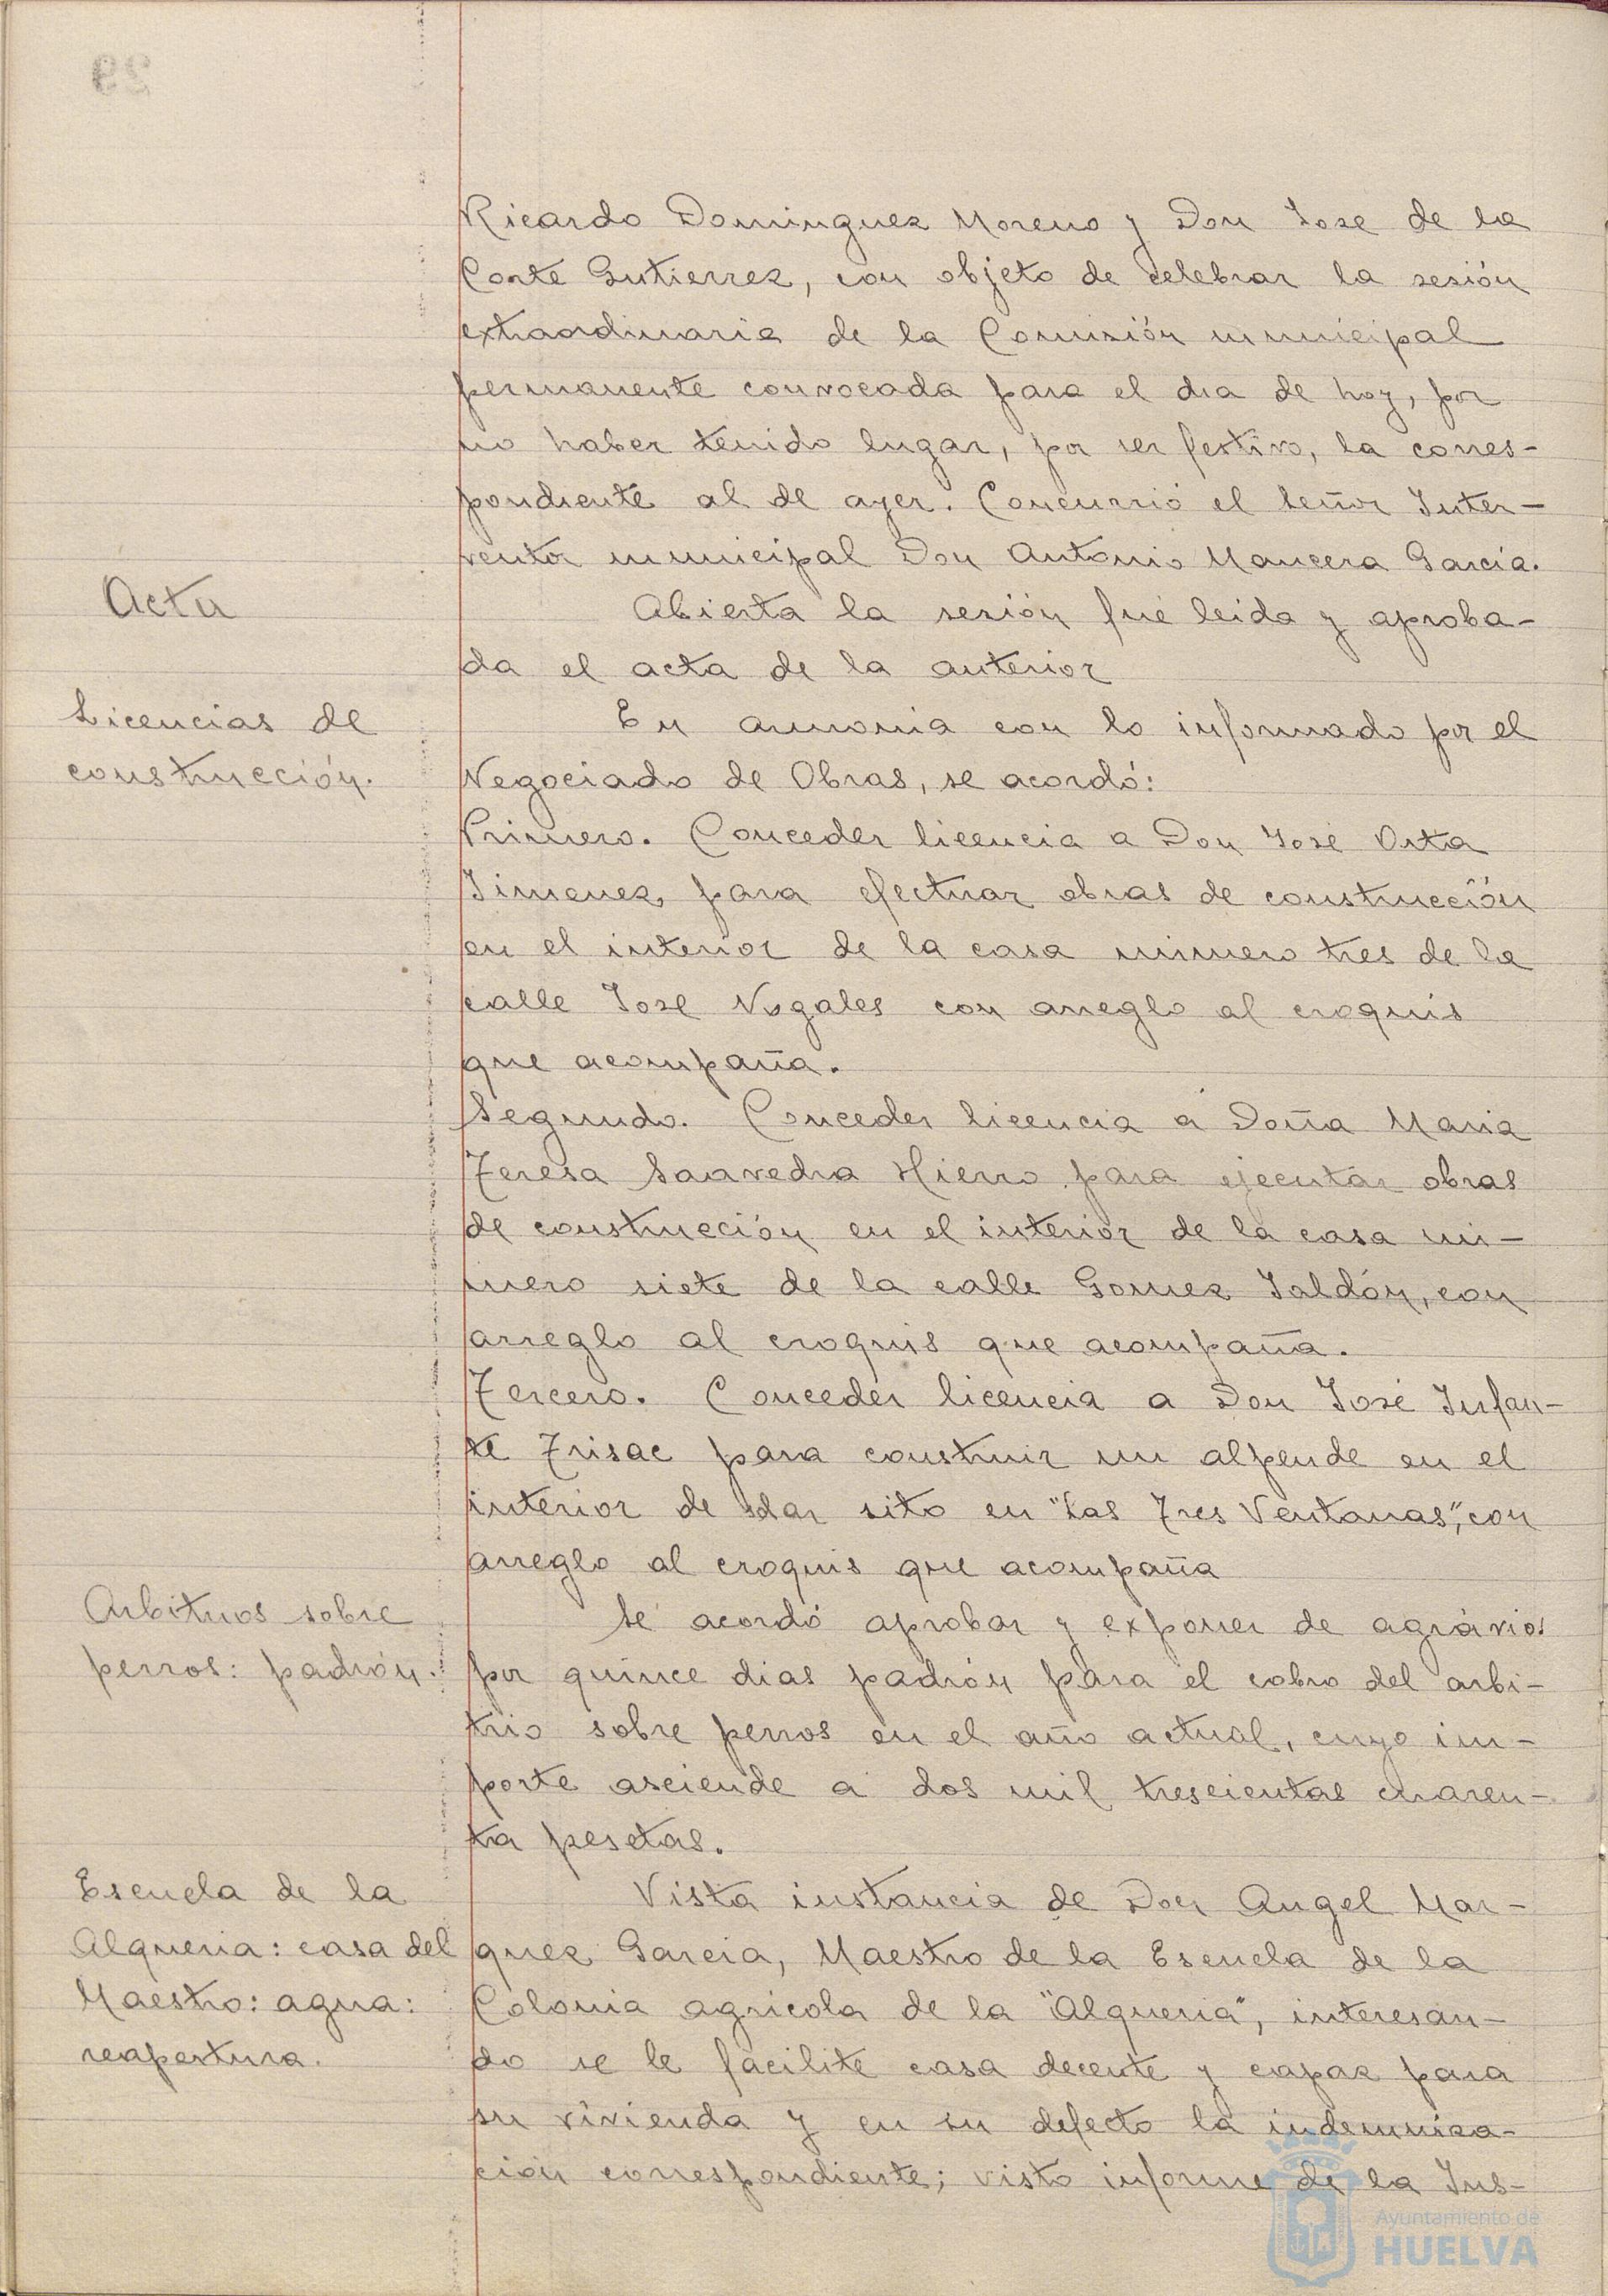 Ricardo Dominguez Moreno y Don Jose de la
Corte Gutierrez, con objeto de celebrar la sesión
extraordinaria de la Comisión municipal
permanente convocada para el dia de hoy, por
no haber tenido lugar, por ser festivo, la corres-
pondiente al de ayer. Concurrió el señor Inter-
ventor municipal Don Antonio Mancera García.
Acta
Abierta la sesión fué leida y aproba-
da el acta de la anterior
Licencias de
construcción.
En armonia con lo informado por el
Negociado de Obras, se acordó:
Primero. Conceder licencia a Don José Orta
Jimenez, para efectuar obras de construcción
en el interior de la casa número tres de la
calle Jose Nogales con arreglo al croquis
que acompaña.
Segundo. Conceder licencia a Doña Maria
Teresa Saavedra Hierro para ejecutar obras
de construcción en el interior de la casa nú-
mero siete de la calle Gomez Jaldón, con
arreglo al croquis que acompaña.
Tercero. Conceder licencia a Don José Infan-
te Trisac para construir un alpende en el
interior de solar sito en "Las Tres Ventanas", con
arreglo al croquis que acompaña
Arbitrios sobre
perros: padrón.
Se acordó aprobar y exponer de agravios
por quince dias padrón para el cobro del arbi-
trio sobre perros en el año actual, cuyo im-
porte asciende a dos mil trescientas cuaren-
ta pesetas.
Escuela de la
Alqueria: casa del
Maestro: agua:
reapertura.
Vista instancia de Don Angel Mar-
quez Garcia, Maestro de la Escuela de la
Colonia agricola de la "Alqueria", interesan-
do se le facilite casa decente y capaz para
su vivienda y en su defecto la indemniza-
ción correspondiente; visto informe de la Ins-
Ayuntamiento de
HUELVA
29